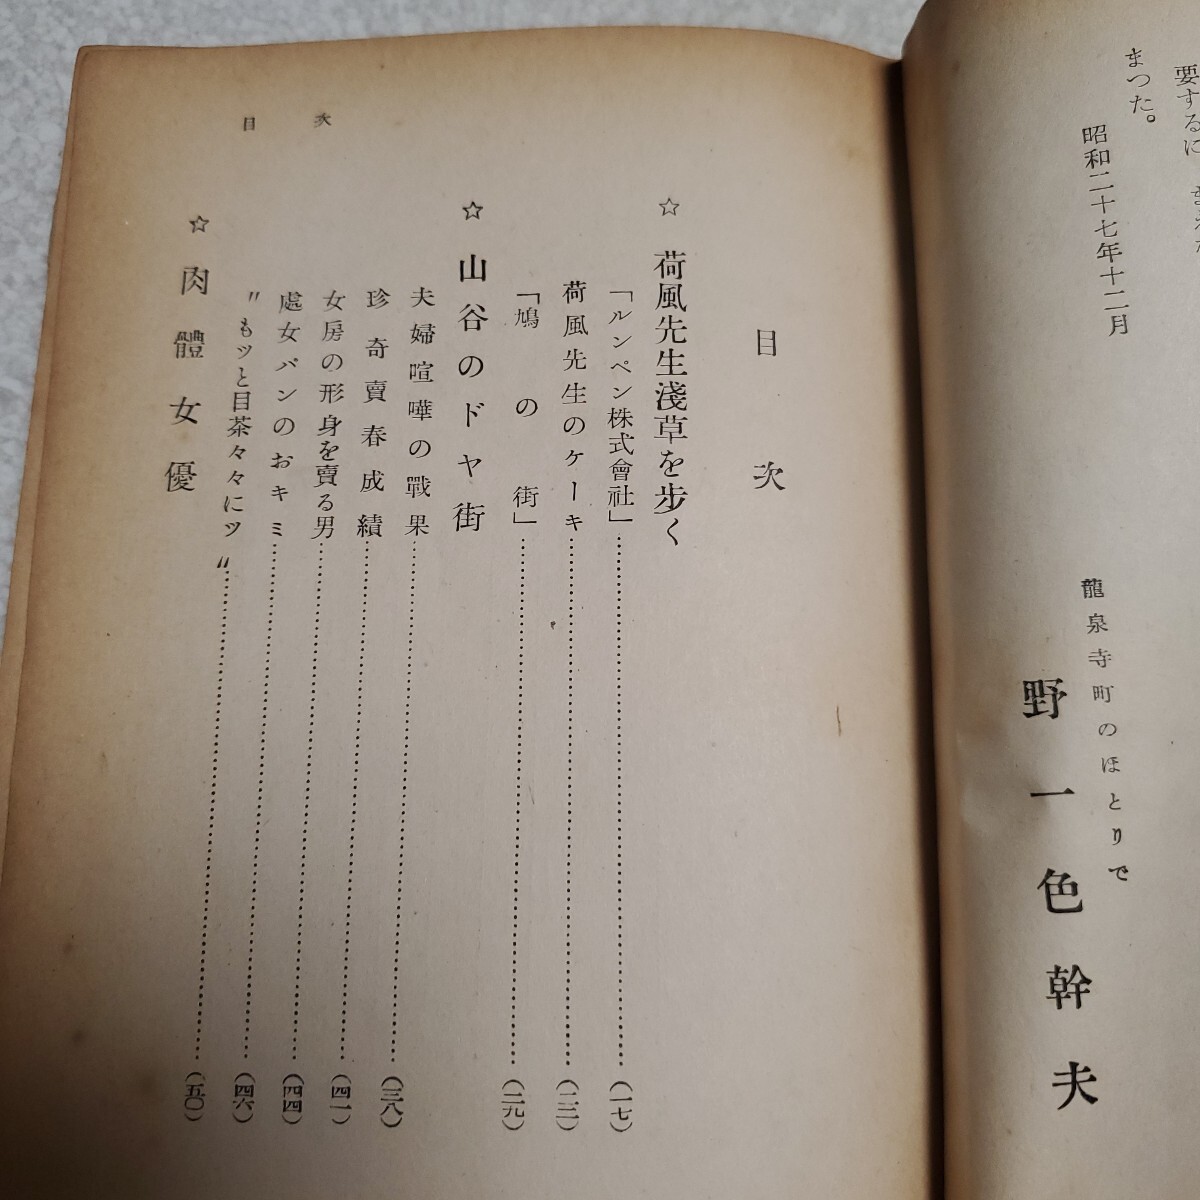 まつた。
昭和二十七年十二月
龍泉寺町のほとりで
野一色幹夫
目次
目次
☆荷風先生淺草を歩く
「ルンペン株式會社」……(一七)
荷風先生のケーキ……(二二)
「鳩の街」……(二九)
☆山谷のドヤ街
夫婦喧嘩の戰果……(三八)
珍奇賣春成績……(四一)
女房の形身を賣る男……(四四)
處女パンのおキミ……(四六)
〃もッと目茶々々にッ〃……(五〇)
☆肉體女優